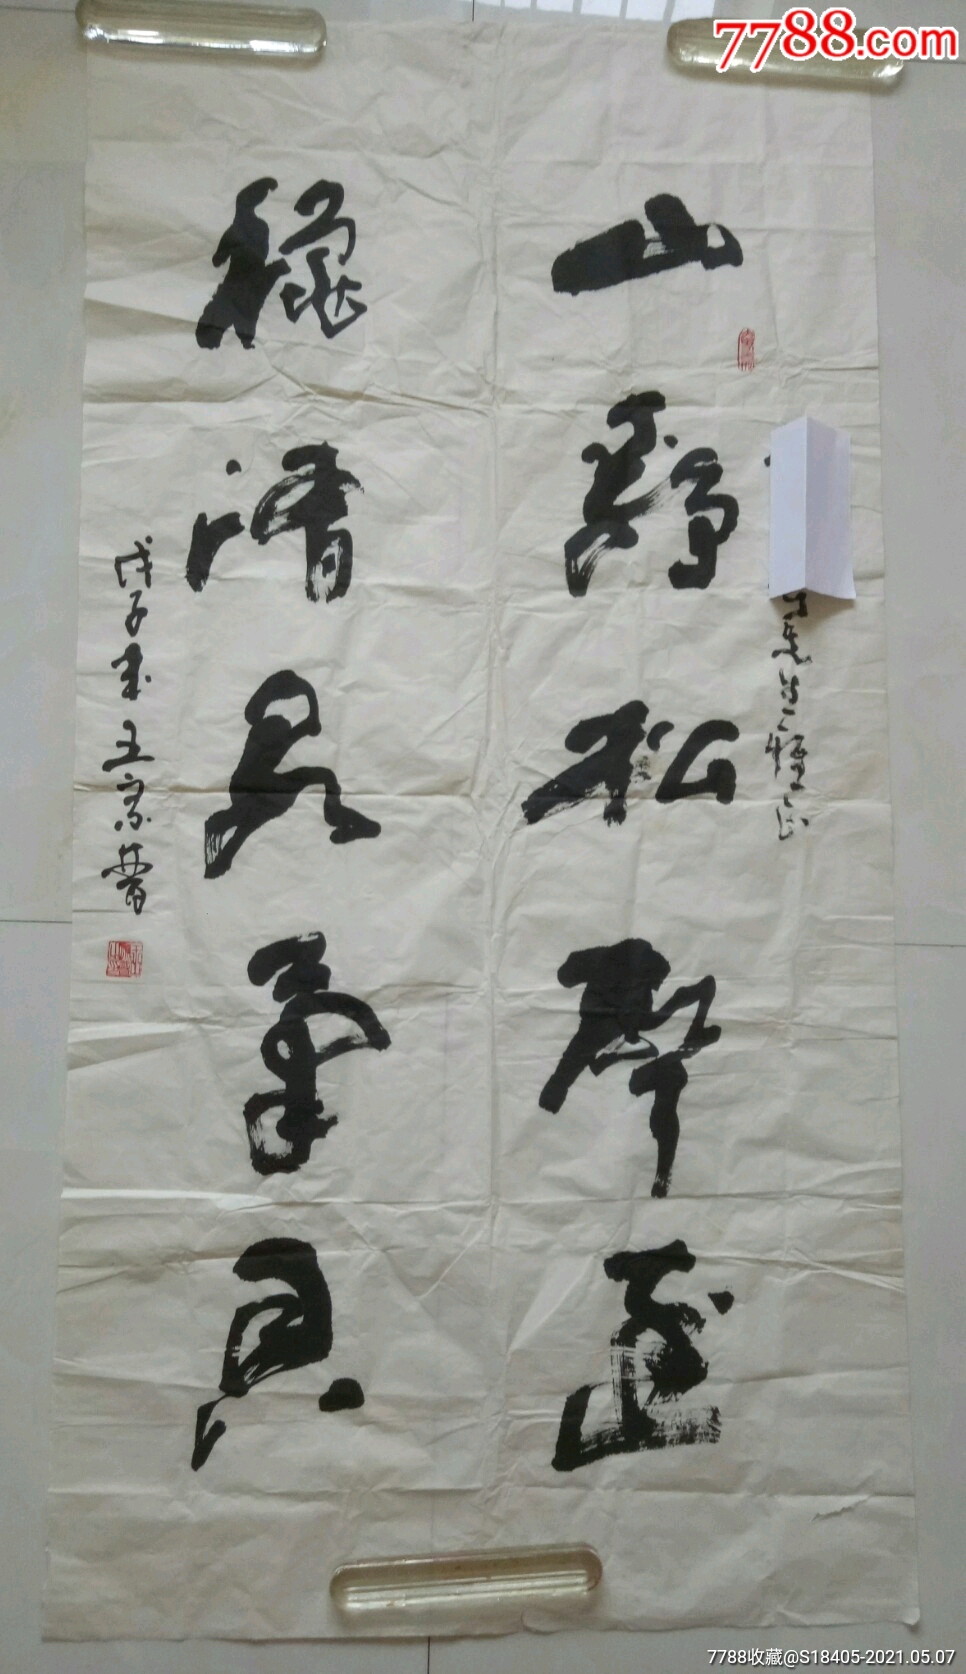 7788.com
山靜松聲遠
先生 正
穐清泉氣
戊子 王 普
7788收藏@S18405-2021.05.07